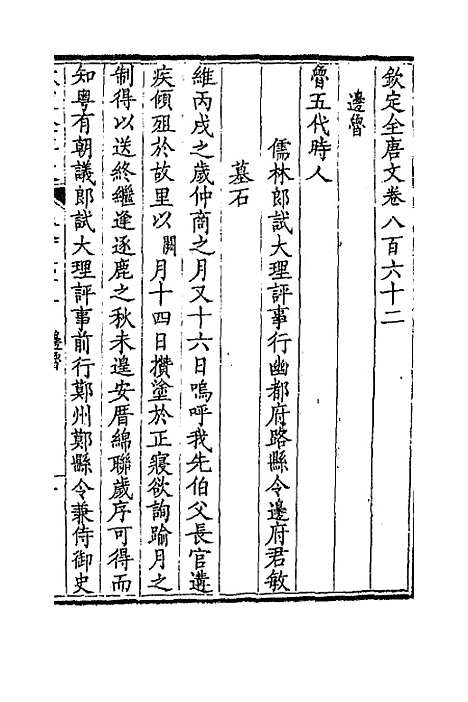 欽定全唐文卷八百六十二
邊魯
魯五代時人
儒林郎試大理評事行幽都府路縣令邊府君敏
墓石
維丙戌之歲仲商之月又十六日嗚呼我先伯父長官遘
疾傾殂於故里以闕月十四日攢塗於正寢欲詢踰月之
制得以送終繼逢逐鹿之秋未遑安厝綿聯歲序可得而
知粤有朝議郎試大理評事前行鄭州鄭縣令兼侍御史
邊魯